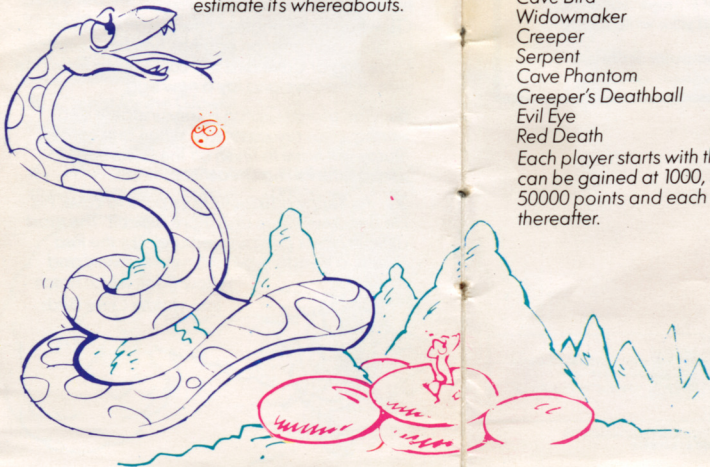 estimate its whereabouts.
Cave Bird
Widowmaker
Creeper
Serpent
Cave Phantom
Creeper's Deathball
Evil Eye
Red Death
Each player starts with th
can be gained at 1000,
50000 points and each
thereafter.